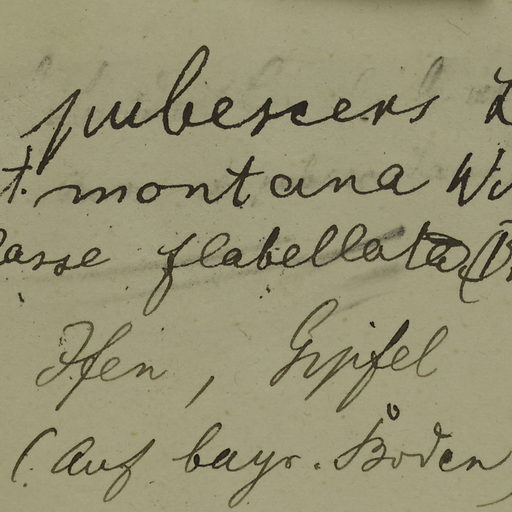 pubescens
t. montana W
asse flabellata (B
Ifen, Gipfel
(Auf bayr. Boden)